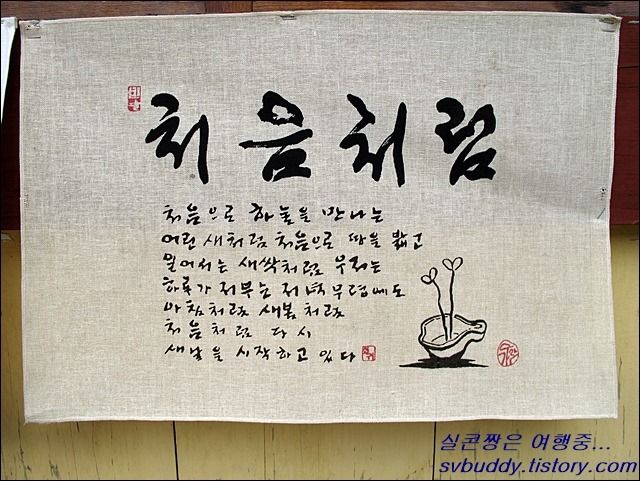 처음처럼
처음으로 하늘을 만나는
어린 새처럼 처음으로 땅을 밟고
일어서는 새싹처럼 우리는
하루가 저무는 저녁무렵에도
아침처럼 새봄처럼
처음처럼 다시
새날을 시작하고 있다
실콘짱은 여행중...
svbuddy.tistory.com